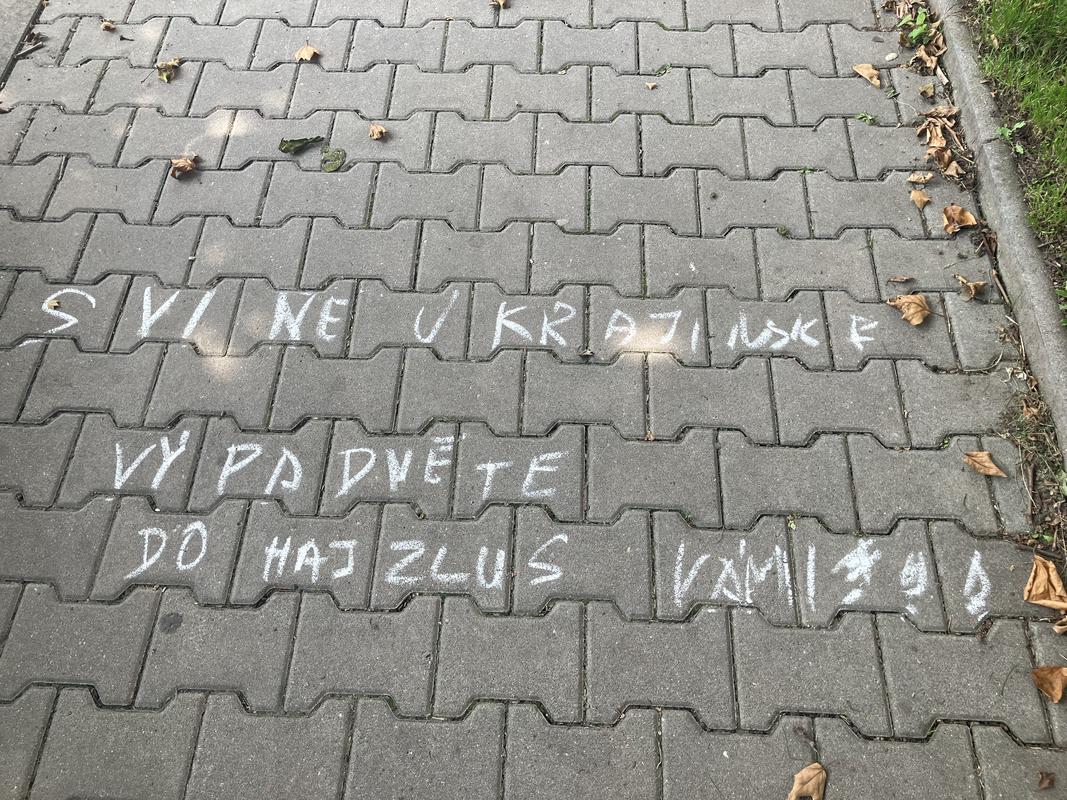 SVINE UKRAJINSKE
VYPADNĚTE
DO HAJZLU S VÁMI